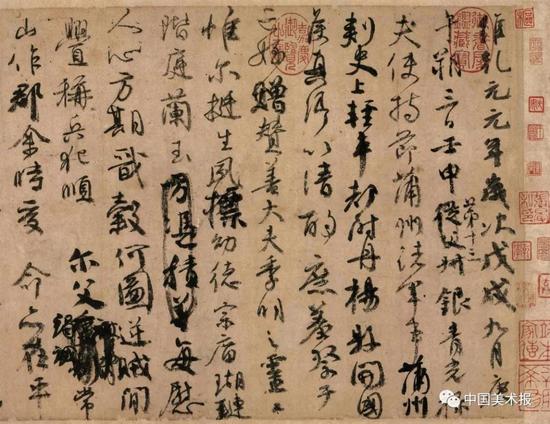 維乾元元年歲次戊戌九月庚
午朔三日壬申第十三從父銀青光祿
夫使持節蒲州諸軍事蒲州
刺史上輕車都尉丹楊縣開國
侯真卿以清酌庶羞祭于
亡姪贈贊善大夫季明之靈曰
惟爾挺生夙標幼德宗廟瑚璉
階庭蘭玉方憑積善每慰
人心方期戩穀何圖逆賊閒
釁稱兵犯順爾父竭誠常
山作郡余時受命亦在平
中国美术报